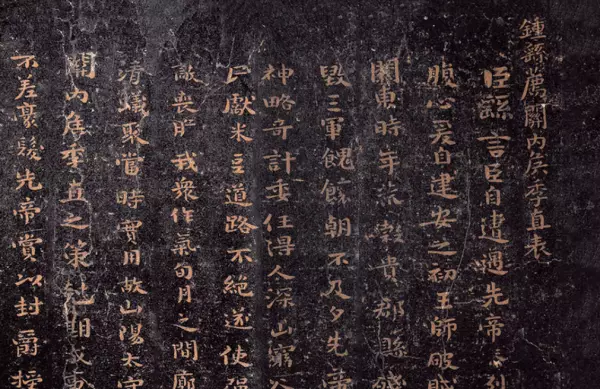 鍾繇薦關內侯季直表
臣繇言臣自遭遇先帝忝列
腹心爰自建安之初王師破賊
關東時年荒穀貴郡縣殘
毀三軍餽饟朝不及夕先帝
神略奇計委任得人深山窮谷
民獻米豆道路不絕遂使強
敵喪膽我衆作氣旬月之間廓
清蟻聚當時實用故山陽太守
關內侯季直之策剋期成事
不差豪髮先帝賞以封爵授